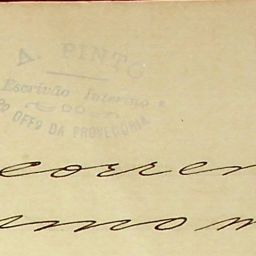 A. PINTO
Escrivão Interino e
DO OFFº DA PROVEDORIA
correr
nno n